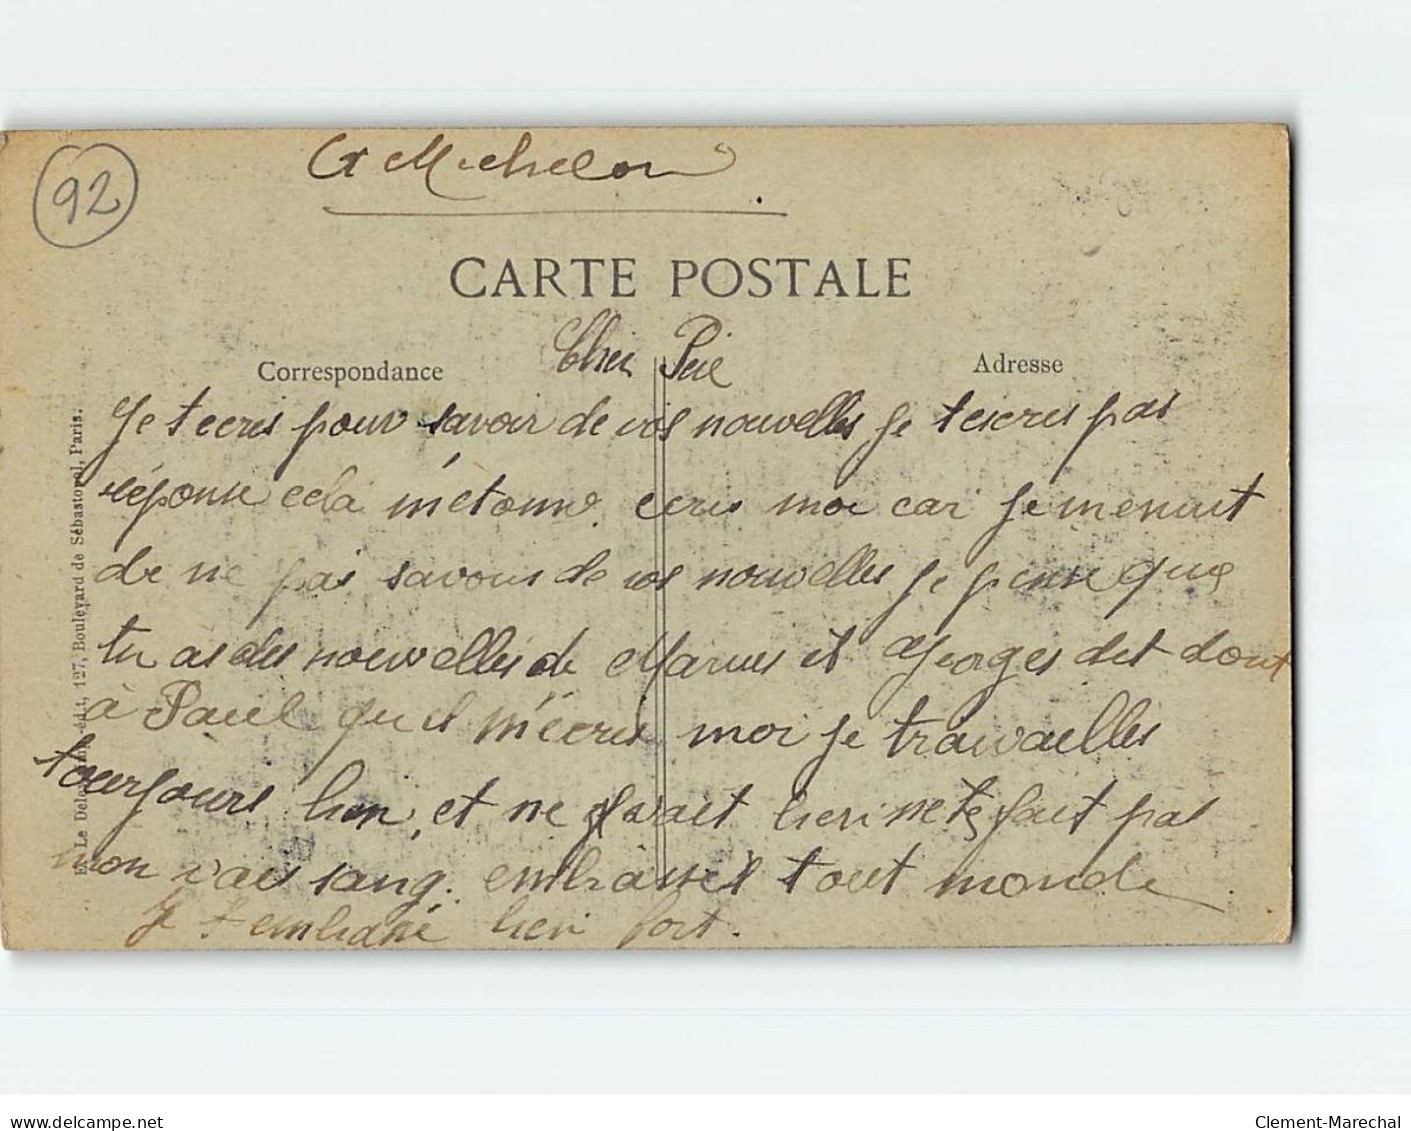 92
A Michelon
CARTE POSTALE
Cher Père
Correspondance
Adresse
Je tecris pour savoir de vos nouvelles je tecris pas
réponse cela m'etonne ecris moi car je m'enuit
de ne pas savoir de vos nouvelles je pense que
tu as des nouvelles de Marius et Georges dit dont
à Paul qu il m'écris moi je travailles
tourjours bien, et ne vait bien ne te fait pas
mon vais sang. embrasser tout monde
Je t embrasse bien fort.
E. Le Deley, imp.-édit., 127, Boulevard de Sébastopol, Paris.
www.delcampe.net
Clement-Marechal